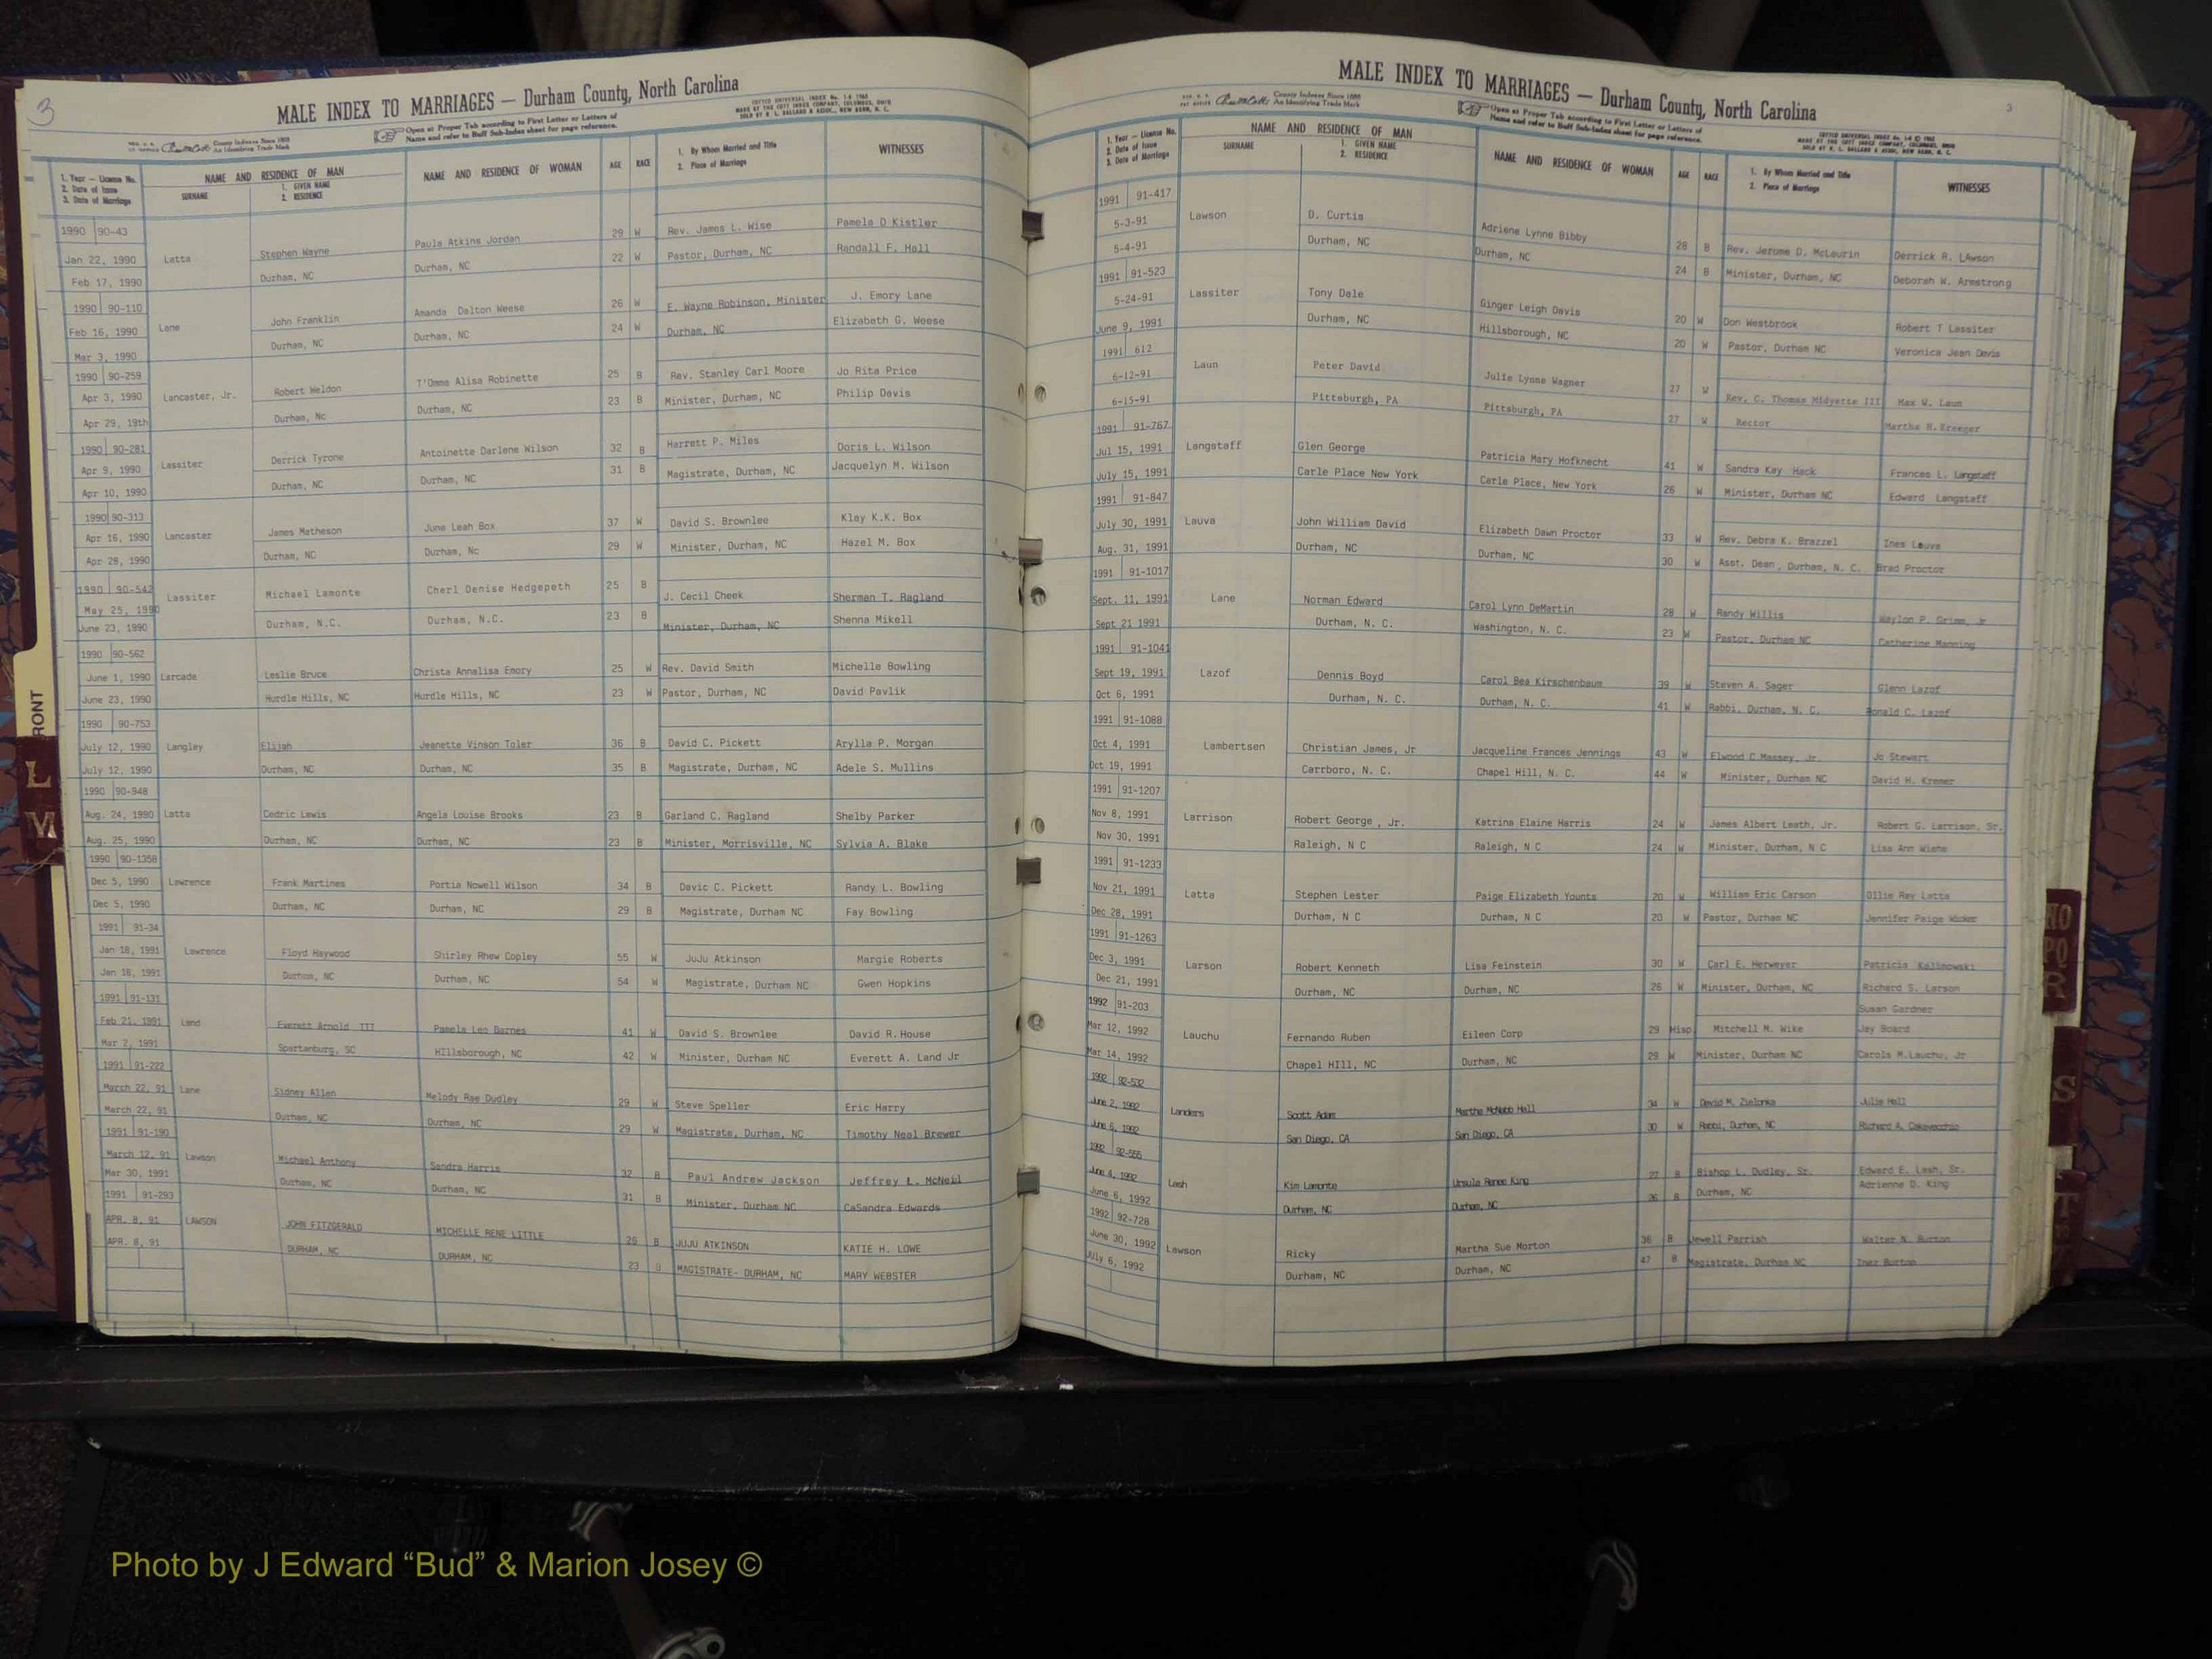 3
MALE INDEX TO MARRIAGES — Durham County, North Carolina
COTTCO UNIVERSAL INDEX No. 1-6 1960
MADE BY THE COTT INDEX COMPANY, COLUMBUS, OHIO
SOLD BY O. L. BALLARD & ASSOC., NEW BERN, N. C.
County Indexes Since 1888
An Identifying Trade Mark
Open at Proper Tab according to First Letter or Letters of
Name and refer to Buff Sub-Index sheet for page reference.
1. Year — License No.
2. Date of Issue
3. Date of Marriage
NAME AND RESIDENCE OF MAN
SURNAME
1. GIVEN NAME
2. RESIDENCE
NAME AND RESIDENCE OF WOMAN
AGE
RACE
1. By Whom Married and Title
2. Place of Marriage
WITNESSES
1990 90-43
Jan 22, 1990 Latta Stephen Wayne Paula Atkins Jordan 29 W Rev. James L. Wise Pamela D Kistler
Feb 17, 1990 Durham, NC Durham, NC 22 W Pastor, Durham, NC Randall F. Hall
1990 90-110
Feb 16, 1990 Lane John Franklin Amanda Dalton Weese 26 W E. Wayne Robinson, Minister J. Emory Lane
Mar 3, 1990 Durham, NC Durham, NC 24 W Durham, NC Elizabeth G. Weese
1990 90-259
Apr 3, 1990 Lancaster, Jr. Robert Weldon T'Omma Alisa Robinette 25 B Rev. Stanley Carl Moore Jo Rita Price
Apr 29, 19th Durham, Nc Durham, NC 23 B Minister, Durham, NC Philip Davis
1990 90-281
Apr 9, 1990 Lassiter Derrick Tyrone Antoinette Darlene Wilson 32 B Harrett P. Miles Doris L. Wilson
Apr 10, 1990 Durham, NC Durham, NC 31 B Magistrate, Durham, NC Jacquelyn M. Wilson
1990 90-313
Apr 16, 1990 Lancaster James Matheson June Leah Box 37 W David S. Brownlee Klay K.K. Box
Apr 28, 1990 Durham, NC Durham, Nc 29 W Minister, Durham, NC Hazel M. Box
1990 90-542
May 25, 1990 Lassiter Michael Lamonte Cherl Denise Hedgepeth 25 B J. Cecil Cheek Sherman T. Ragland
June 23, 1990 Durham, N.C. Durham, N.C. 23 B Minister, Durham, NC Shenna Mikell
1990 90-562
June 1, 1990 Larcade Leslie Bruce Christa Annalisa Emory 25 W Rev. David Smith Michelle Bowling
June 23, 1990 Hurdle Hills, NC Hurdle Hills, NC 23 W Pastor, Durham, NC David Pavlik
1990 90-753
July 12, 1990 Langley Elijah Jeanette Vinson Toler 36 B David C. Pickett Arylla P. Morgan
July 12, 1990 Durham, NC Durham, NC 35 B Magistrate, Durham, NC Adele S. Mullins
1990 90-948
Aug. 24, 1990 Latta Cedric Lewis Angela Louise Brooks 23 B Garland C. Ragland Shelby Parker
Aug. 25, 1990 Durham, NC Durham, NC 23 B Minister, Morrisville, NC Sylvia A. Blake
1990 90-1358
Dec 5, 1990 Lawrence Frank Martines Portia Nowell Wilson 34 B Davic C. Pickett Randy L. Bowling
Dec 5, 1990 Durham, NC Durham, NC 29 B Magistrate, Durham NC Fay Bowling
1991 91-34
Jan 18, 1991 Lawrence Floyd Haywood Shirley Rhew Copley 55 W JuJu Atkinson Margie Roberts
Jan 18, 1991 Durham, NC Durham, NC 54 W Magistrate, Durham NC Gwen Hopkins
1991 91-131
Feb 21, 1991 Land Everett Arnold III Pamela Leo Barnes 41 W David S. Brownlee David R. House
Mar 2, 1991 Spartanburg, SC Hillsborough, NC 42 W Minister, Durham NC Everett A. Land Jr
1991 91-222
March 22, 91 Lane Sidney Allen Melody Rae Dudley 29 W Steve Speller Eric Harry
March 22, 91 Durham, NC Durham, NC 29 W Magistrate, Durham, NC Timothy Neal Brewer
1991 91-190
March 12, 91 Lawson Michael Anthony Sandra Harris 32 B Paul Andrew Jackson Jeffrey L. McNeil
Mar 30, 1991 Durham, NC Durham, NC 31 B Minister, Durham NC CaSandra Edwards
1991 91-293
APR. 8, 91 LAWSON JOHN FITZGERALD MICHELLE RENE LITTLE 26 B JUJU ATKINSON KATIE H. LOWE
APR. 8, 91 DURHAM, NC DURHAM, NC 23 B MAGISTRATE- DURHAM, NC MARY WEBSTER
RONT
L
M
3
MALE INDEX TO MARRIAGES — Durham County, North Carolina
County Indexes Since 1888
An Identifying Trade Mark
Open at Proper Tab according to First Letter or Letters of
Name and refer to Buff Sub-Index sheet for page reference.
1. Year — License No.
2. Date of Issue
3. Date of Marriage
NAME AND RESIDENCE OF MAN
SURNAME
1. GIVEN NAME
2. RESIDENCE
NAME AND RESIDENCE OF WOMAN
AGE
RACE
1. By Whom Married and Title
2. Place of Marriage
WITNESSES
1991 91-417
5-3-91 Lawson D. Curtis Adriene Lynne Bibby 28 B Rev. Jerome D. McLaurin Derrick R. LAwson
5-4-91 Durham, NC Durham, NC 24 B Minister, Durham, NC Deborah W. Armstrong
1991 91-523
5-24-91 Lassiter Tony Dale Ginger Leigh Davis 20 W Don Westbrook Robert T Lassiter
June 9, 1991 Durham, NC Hillsborough, NC 20 W Pastor, Durham NC Veronica Jean Davis
1991 612
6-12-91 Laun Peter David Julie Lynne Wagner 27 W Rev. C. Thomas Midyette III Max W. Laun
6-15-91 Pittsburgh, PA Pittsburgh, PA 27 W Rector Martha R. Kreeger
1991 91-767
Jul 15, 1991 Langstaff Glen George Patricia Mary Hofknecht 41 W Sandra Kay Hack Frances L. Langstaff
July 15, 1991 Carle Place New York Carle Place, New York 26 W Minister, Durham NC Edward Langstaff
1991 91-847
July 30, 1991 Lauva John William David Elizabeth Dawn Proctor 33 W Rev. Debra K. Brazzel Ines Lauva
Aug. 31, 1991 Durham, NC Durham, NC 30 W Asst. Dean, Durham, N. C. Brad Proctor
1991 91-1017
Sept. 11, 1991 Lane Norman Edward Carol Lynn DeMartin 28 W Randy Willis Waylon P. Grimm, Jr
Sept 21 1991 Durham, N. C. Washington, N. C. 23 W Pastor, Durham NC Catherine Manning
1991 91-1041
Sept 19, 1991 Lazof Dennis Boyd Carol Bea Kirschenbaum 39 W Steven A. Sager Glenn Lazof
Oct 6, 1991 Durham, N. C. Durham, N. C. 41 W Rabbi, Durham, N. C. Ronald C. Lazof
1991 91-1088
Oct 4, 1991 Lambertsen Christian James, Jr Jacqueline Frances Jennings 43 W Elwood C Massey, Jr. Jo Stewart
Oct 19, 1991 Carrboro, N. C. Chapel Hill, N. C. 44 W Minister, Durham NC David H. Kremer
1991 91-1207
Nov 8, 1991 Larrison Robert George , Jr. Katrina Elaine Harris 24 W James Albert Leath, Jr. Robert G. Larrison, Sr.
Nov 30, 1991 Raleigh, N C Raleigh, N C 24 W Minister, Durham, N C Lisa Ann Wiehe
1991 91-1233
Nov 21, 1991 Latta Stephen Lester Paige Elizabeth Younts 20 W William Eric Carson Ollie Ray Latta
Dec 28, 1991 Durham, N C Durham, N C 20 W Pastor, Durham NC Jennifer Paige Wicker
1991 91-1263
Dec 3, 1991 Larson Robert Kenneth Lisa Feinstein 30 W Carl E. Herweyer Patricia Kalinowski
Dec 21, 1991 Durham, NC Durham, NC 26 W Minister, Durham, NC Richard S. Larson
1992 91-203 Susan Gardner
Mar 12, 1992 Lauchu Fernando Ruben Eileen Corp 29 Hisp Mitchell M. Wike Jay Board
Mar 14, 1992 Chapel HIll, NC Durham, NC 29 W Minister, Durham NC Carols M.Lauchu, Jr
1992 92-532
June 2, 1992 Landers Scott Adam Martha McNabb Hall 34 W David M. Zielonka Julie Hall
June 6, 1992 San Diego, CA San Diego, CA 30 W Rabbi, Durham, NC Richard A.
1992 92-555
June 4, 1992 Lash Kim Lamonte Ursula Renee King 27 B Bishop L. Dudley, Sr. Edward E. Lash, Sr.
June 6, 1992 Durham, NC Durham, NC 26 B Durham, NC Adrienne D. King
1992 92-728
June 30, 1992 Lawson Ricky Martha Sue Morton 36 B Jewell Parrish Walter N. Burton
July 6, 1992 Durham, NC Durham, NC 47 B Magistrate, Durham NC Inez Burton
S
T
Photo by J Edward “Bud” & Marion Josey ©